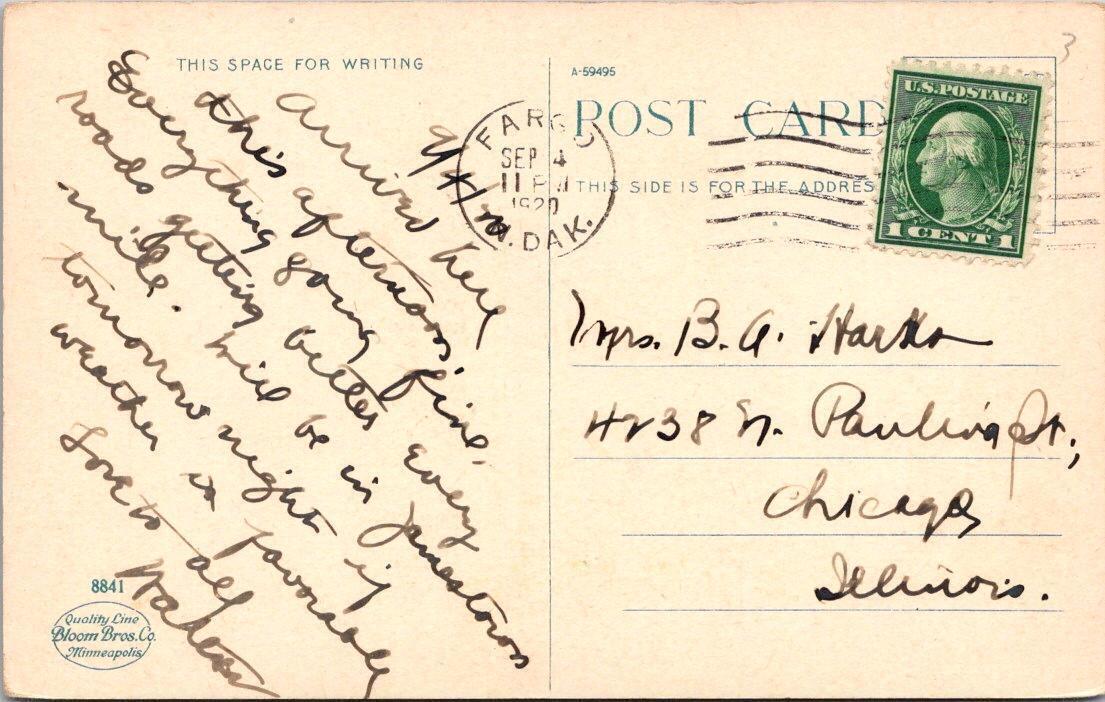 THIS SPACE FOR WRITING
9/4/20
Arrived here
this afternoon.
Everything going fine,
roads getting better every
mile. Will be in Jamestown
tomorrow night if
weather is favorable
Love to all
8841
Quality Line
Bloom Bros. Co.
Minneapolis
A-59495
POST CARD
THIS SIDE IS FOR THE ADDRES
FARGO
SEP 4
11 PM
1920
N. DAK.
U.S. POSTAGE
1 CENT 1
3
Mrs. B. A.
4238 N. Paulina St.,
Chicago,
Illinois.